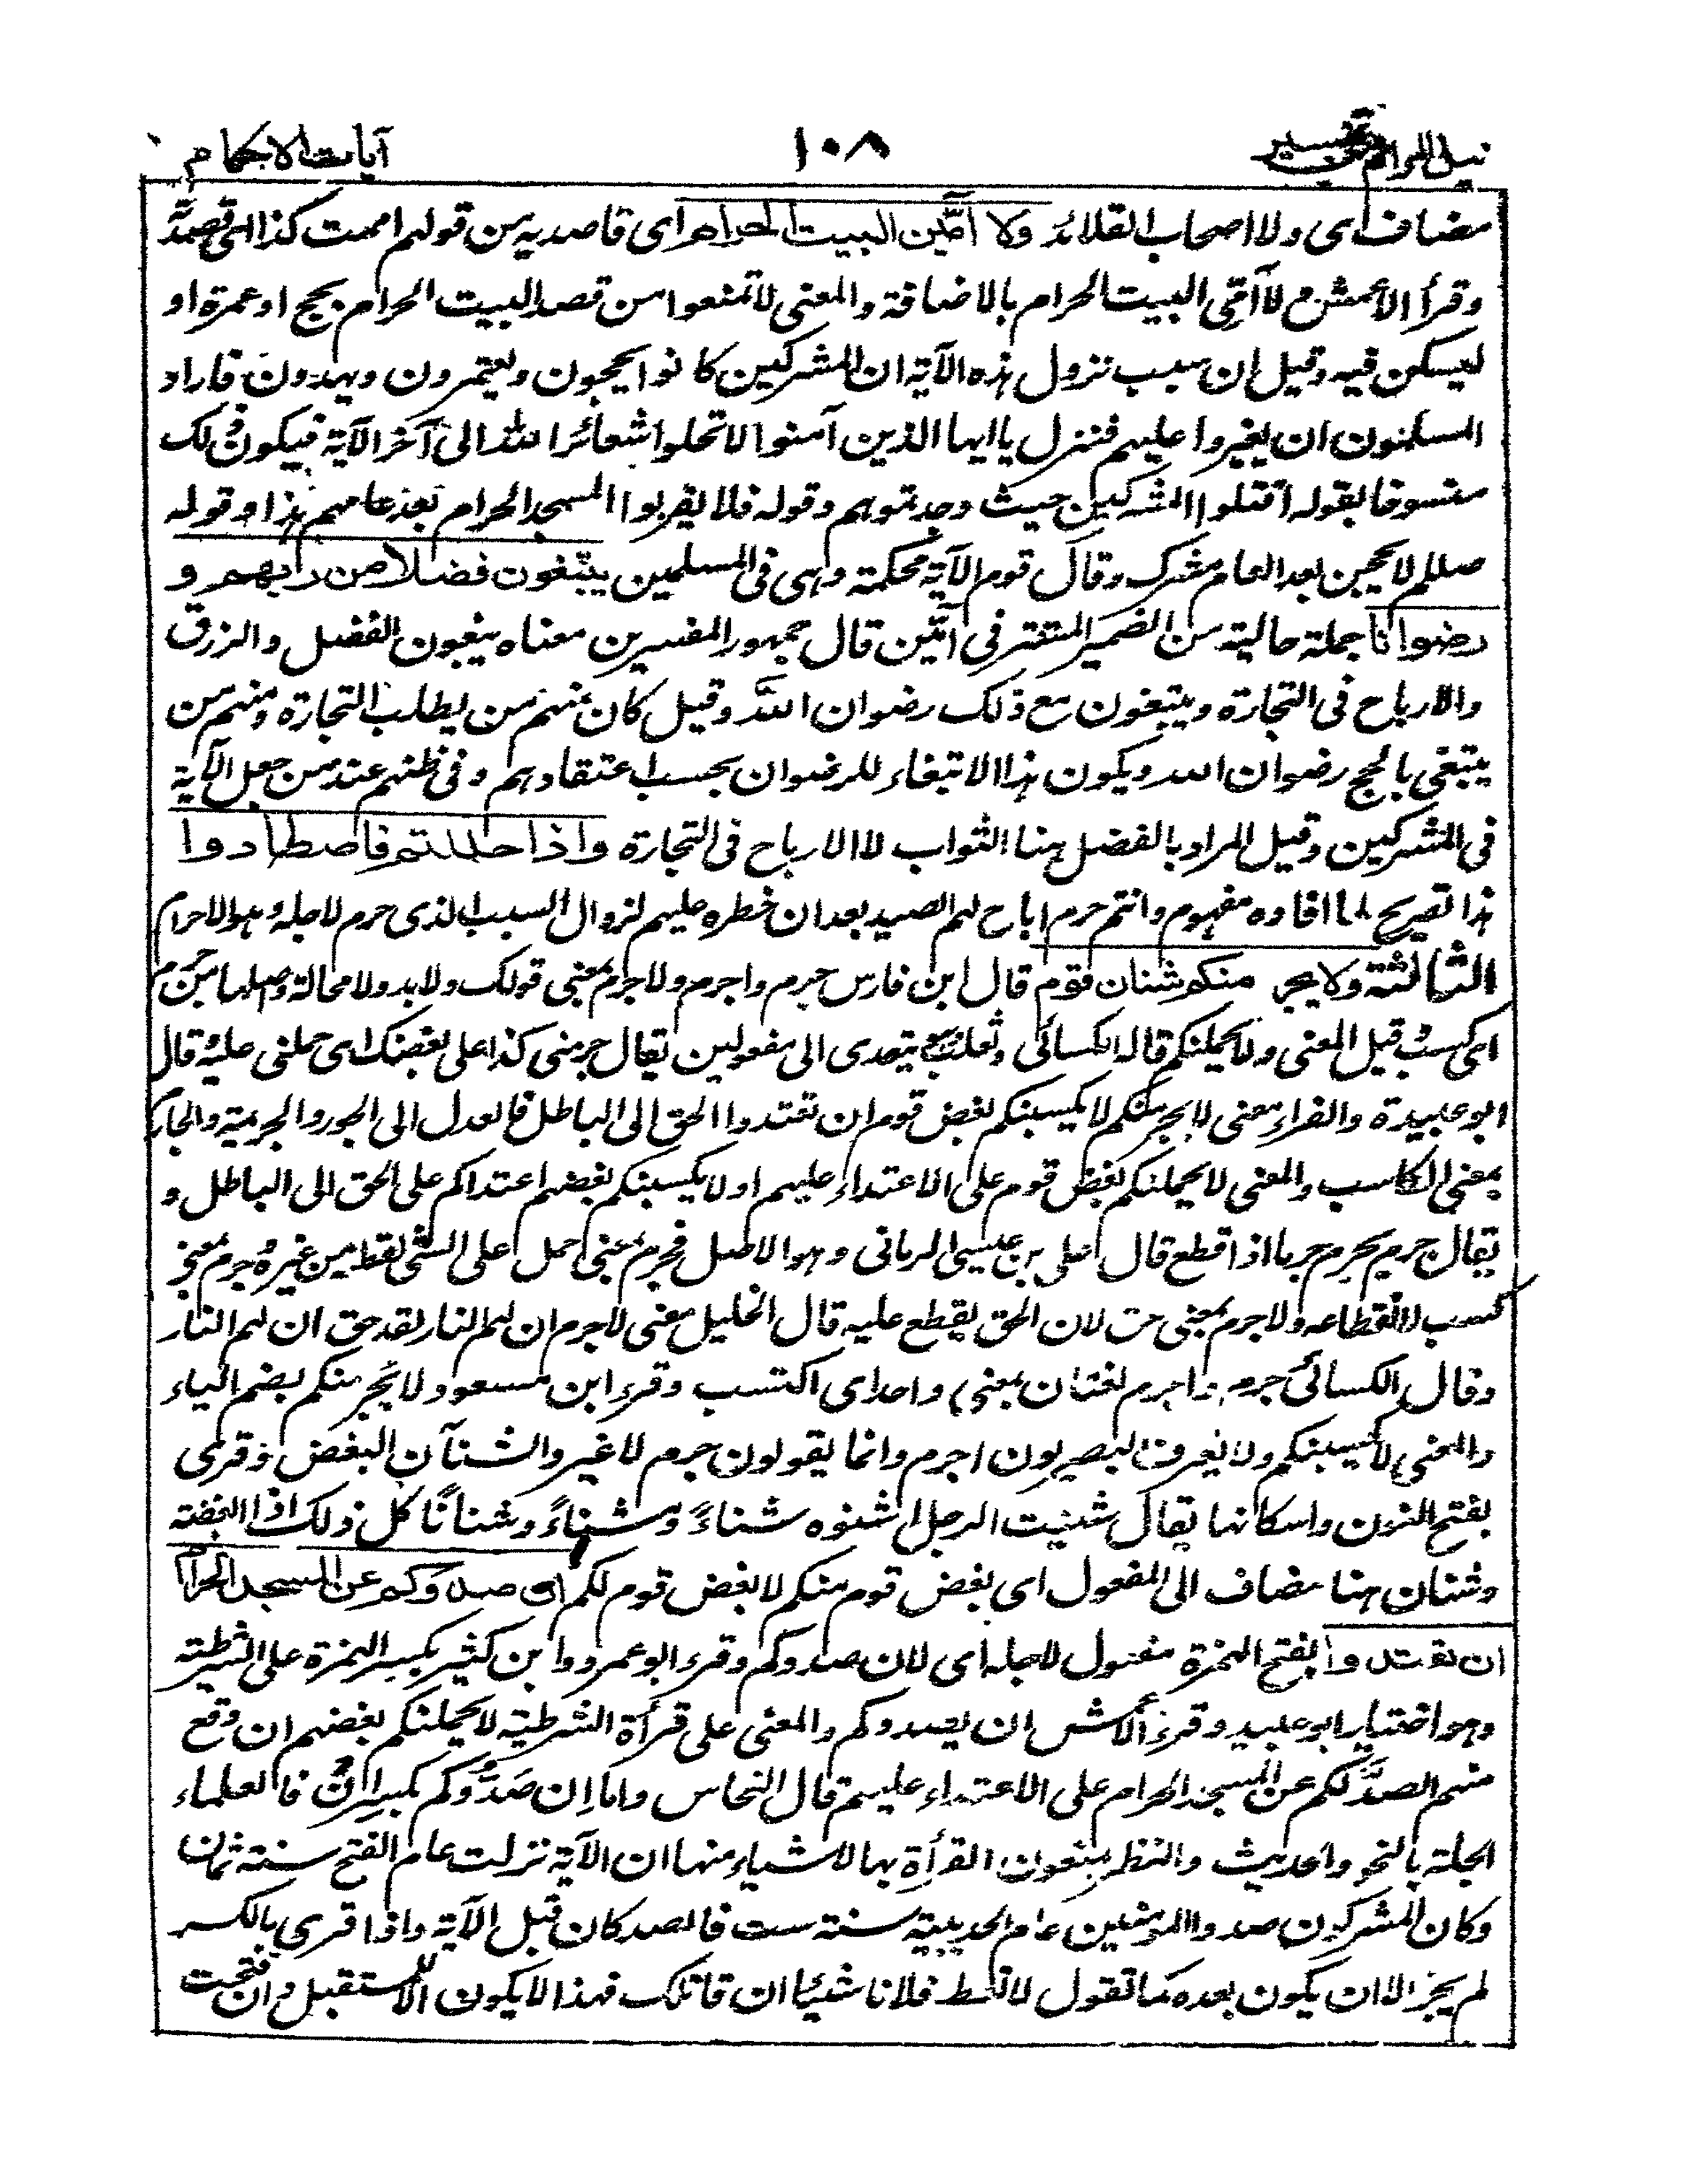 نيل المرام تفسير ١٠٨ آيات الاحكام
مضاف اى ولا اصحاب القلائد ولا آمّين البيت الحرام اى قاصديه من قولهم اممت كذا اى قصدتّه
وقرأ الأعمش ولا آمّى البيت الحرام بالاضافة والمعنى لا تمنعوا من قصد البيت الحرام بحج او عمرة او
ليسكن فيه وقيل ان سبب نزول هذه الآية ان المشركين كانوا يحجون ويعتمرون ويهدون فاراد
المسلمون ان يغيروا عليهم فنزل يا ايها الذين آمنوا لا تحلوا شعائر الله الى آخر الآية فيكون ذلك
منسوخا بقوله اقتلوا المشركين حيث وجدتموهم وقوله فلا يقربوا المسجد الحرام بعد عامهم هذا وقوله
صللم لا يحجن بعد العام مشرك وقال قوم الآية محكمة وهى فى المسلمين يبتغون فضلا من ربهم و
رضوانا جملة حالية من الضمير المستتر فى آمّين قال جمهور المفسرين معناه يبغون الفضل والرزق
والارباح فى التجارة ويبتغون مع ذلك رضوان الله وقيل كان منهم من يطلب التجارة ومنهم من
يبتغى بالحج رضوان الله ويكون هذا الابتغاء للرضوان بحسب اعتقادهم وفى ظنهم عند من جعل الآية
فى المشركين وقيل المراد بالفضل هنا الثواب لا الارباح فى التجارة واذا حللتم فاصطادوا
هذا تصريح لما افاده مفهوم وانتم حرم اباح لهم الصيد بعد ان خطره عليهم لزوال السبب الذى حرم لاجله وهو الاحرام
الثالثة ولا يجرمنكم شنان قوم قال ابن فارس جرم واجرم ولا جرم بمعنى قولك ولا بد ولا محالة واصلها من جرم
اى كسب قيل المعنى ولا يحملنكم قاله الكسائى وثعلب وهو يتعدى الى مفعولين يقال جرمنى كذا على بغضك اى حملنى عليه وقال
ابو عبيدة والفراء معنى لا يجرمنكم لا يكسبنكم بغض قوم ان تعتدوا الحق الى الباطل فالعدل الى الجور والجريمة والجارم
بمعنى الكاسب والمعنى لا يحملنكم بغض قوم على الاعتداء عليهم او لا يكسبنكم بغضهم اعتداكم على الحق الى الباطل و
يقال جرم يجرم جرما اذا قطع قال على بن عيسى الرمانى وهو الاصل فجرم بمعنى حمل على الشئ لقطعه من غيره وجرم بمعنى
كسب لانقطاعه ولا جرم بمعنى حق لان الحق يقطع عليه قال الخليل معنى لا جرم ان لهم النار لقد حق ان لهم النار
وقال الكسائى جرم واجرم لغتان بمعنى واحد اى اكتسب وقرء ابن مسعود ولا يُجرمنكم بضم الياء
والمعنى لا يكسبنكم ولا يعرف البصريون اجرم وانما يقولون جرم لا غير والشنآن البغض وقرى
بفتح النون واسكانها يقال شنيت الرجل اشنوه شناءً وشناءً وشنانًا كل ذلك اذا ابغضته
وشنان هنا مضاف الى المفعول اى بغض قوم منكم لا بغض قوم لكم ان صدوكم عن المسجد الحرام
ان تعتدوا بفتح الهمزة مفعول لاجله اى لان صدوكم وقرء ابو عمرو وابن كثير بكسر الهمزة على الشرطية
وهو اختيار ابو عبيد وقرء الأعمش ان يصدوكم والمعنى على قرأة الشرطية لا يحملنكم بغضهم ان وقع
منهم الصدّ لكم عن المسجد الحرام على الاعتداء عليهم قال النحاس واما اِن صَدُّوكم بكسر ان فالعلماء
الجلة بالنحو والحديث والنظر يمنعون القرأة بها لاشياء منها ان الآية نزلت عام الفتح سنة ثمان
وكان المشركون صدوا المؤمنين عام الحديبية سنة ست فالصد كان قبل الآية واذا قرى بالكسر
لم يجز الا ان يكون بعده كما تقول لا تعط فلانا شيئا ان قاتلك فهذا لا يكون الا للمستقبل وان فتحت